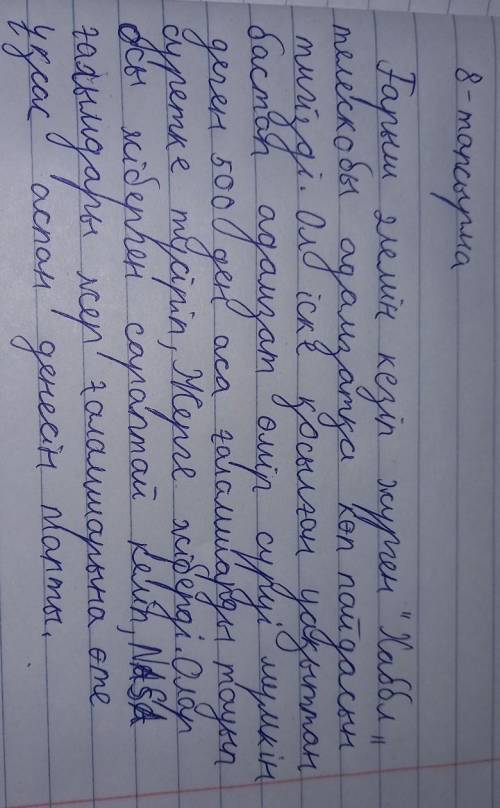 8-тапсырма
Ғарыш әлемін кезіп жүрген "Хаббл"
телескобы адамзатқа көп пайдасын
тигізді. Ол іске қосылған уақыттан
бастап адамзат өмір сүруі мүмкін
деген 500 ден аса ғаламшарды тауып
суретке түсіріп, Жерге жіберді. Олар
осы жіберген сараптай келіп, NASA
ғалымдары жер ғаламшарына өте
ұқсас аспан денесін тапты.